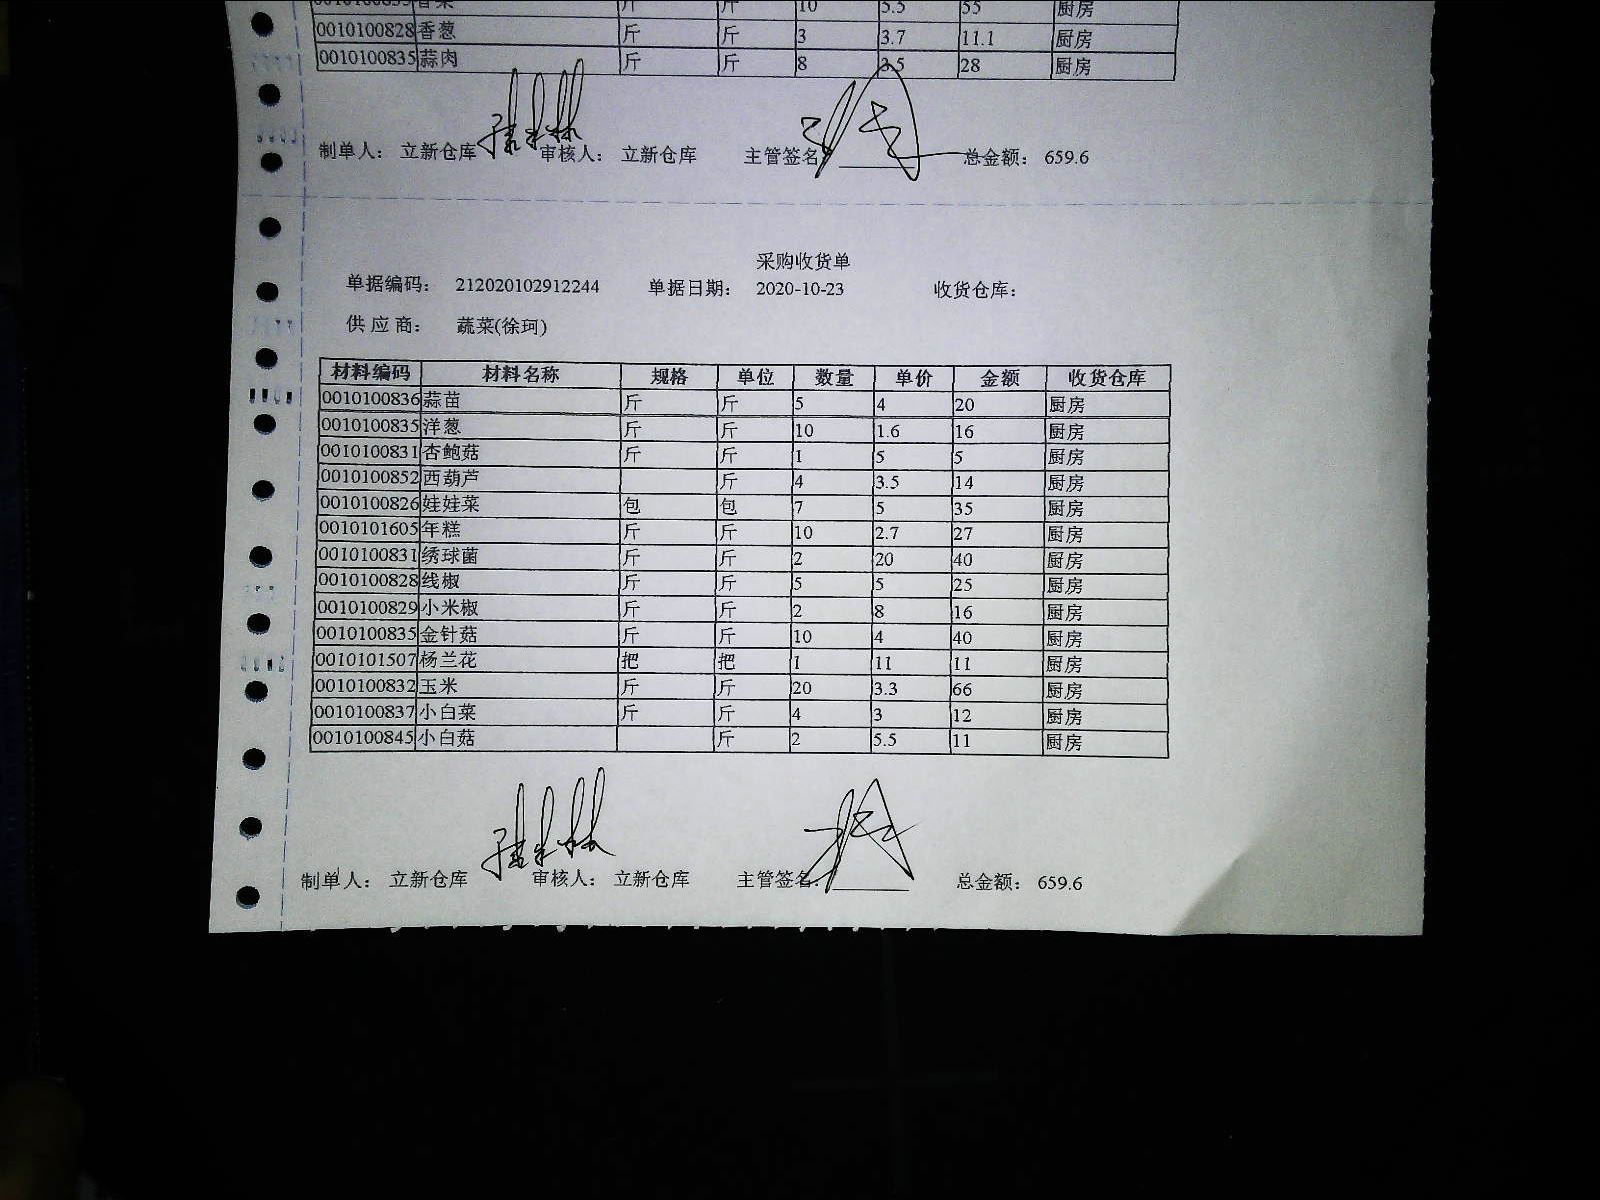 10 5.5 55 厨房
0010100828 香葱 斤 斤 3 3.7 11.1 厨房
0010100835 蒜肉 斤 斤 8 3.5 28 厨房
制单人： 立新仓库 审核人： 立新仓库 主管签名： 总金额： 659.6
采购收货单
单据编码： 212020102912244 单据日期： 2020-10-23 收货仓库：
供应商： 蔬菜(徐珂)
材料编码 材料名称 规格 单位 数量 单价 金额 收货仓库
0010100836 蒜苗 斤 斤 5 4 20 厨房
0010100835 洋葱 斤 斤 10 1.6 16 厨房
0010100831 杏鲍菇 斤 斤 1 5 5 厨房
0010100852 西葫芦 斤 4 3.5 14 厨房
0010100826 娃娃菜 包 包 7 5 35 厨房
0010101605 年糕 斤 斤 10 2.7 27 厨房
0010100831 绣球菌 斤 斤 2 20 40 厨房
0010100828 线椒 斤 斤 5 5 25 厨房
0010100829 小米椒 斤 斤 2 8 16 厨房
0010100835 金针菇 斤 斤 10 4 40 厨房
0010101507 杨兰花 把 把 1 11 11 厨房
0010100832 玉米 斤 斤 20 3.3 66 厨房
0010100837 小白菜 斤 斤 4 3 12 厨房
0010100845 小白菇 斤 2 5.5 11 厨房
制单人： 立新仓库 审核人： 立新仓库 主管签名： 总金额： 659.6